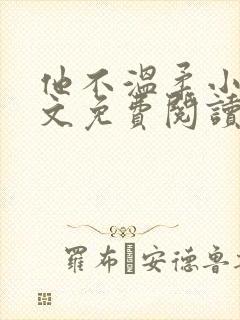 他不溫柔小
文免費閱讀
羅布·安德魯